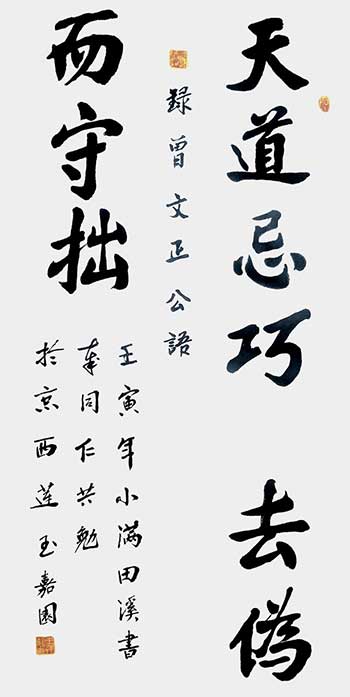 天道忌巧 去偽
而守拙
錄曾文正公語
壬寅年小滿田溪書
奉同仁共勉
於京西蓮玉嘉園